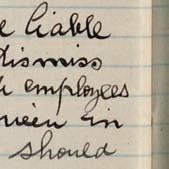 liable
dismiss
employees
in
should